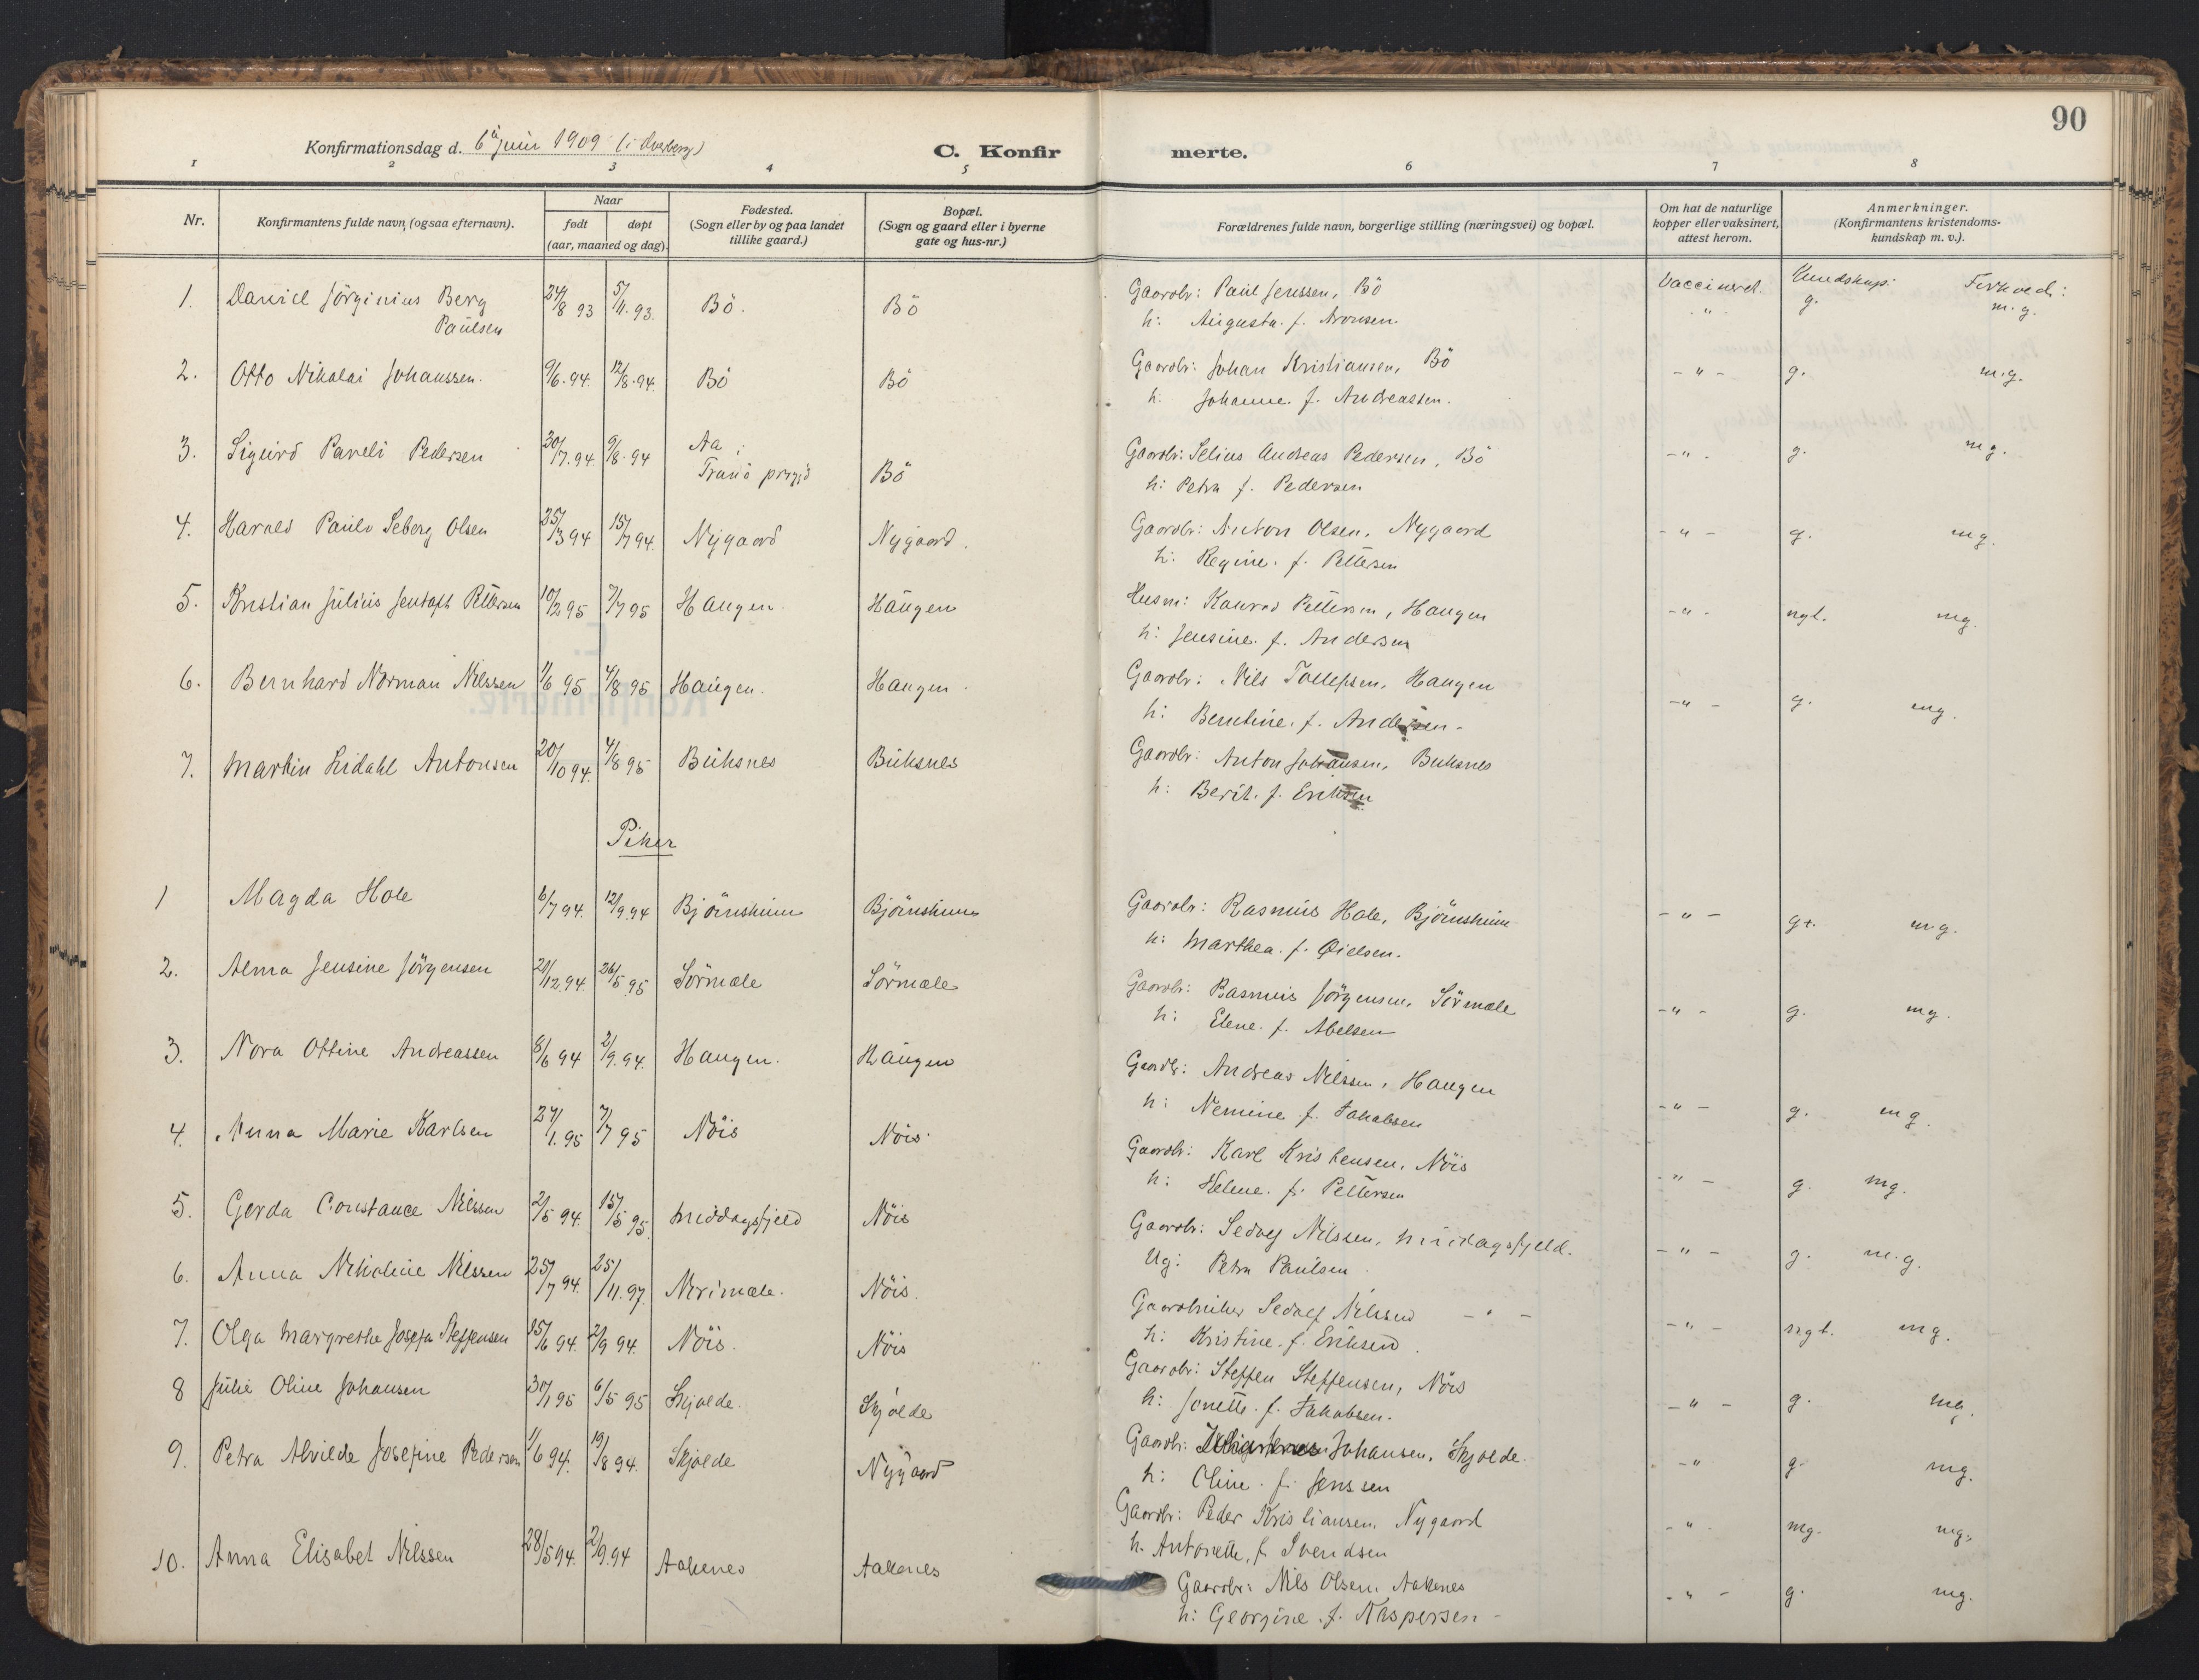 90
Konfirmationsdag d. 6te juni 1909 (i Dverberg)
C. Konfirmerte.
1 2 3 4 5 6 7 8
Nr.
Konfirmantens fulde navn (ogsaa efternavn).
Naar
født døpt
(aar, maaned og dag).
Fødested.
(Sogn eller by og paa landet
tillike gaard.)
Bopæl.
(Sogn og gaard eller i byerne
gate og hus-nr.)
Forældrenes fulde navn, borgerlige stilling (næringsvei) og bopæl.
Om hat de naturlige
kopper eller vaksinert,
attest herom.
Anmerkninger.
(Konfirmantens kristendoms-
kundskap m. v.).
1. Daniel Jörginius Berg 24/8 93 5/11.93. Bö. Bö Gaardbr: Paul Jenssen, Bö Vaccineret. Kundskap: g.
Paulsen h: Augusta. f. Aronsen. - " - m.g.
2. Otto Nikolai Johanssen. 9/6.94. 12/8.94. Bö Bö Gaardbr: Johan Kristiansen, Bö - " - g. m.g.
h: Johanne. f. Andreassen.
3. Sigurd Pareli Pedersen 30/7.94. 9/8.94 Aa i Gaardbr: Selius Andreas Pedersen, Bö - " - g. mg.
Tranö prgjd Bö h: Petra f. Pedersen
4. Harald Paulo Seberg Olsen 25/3 94 15/7 94. Nygaard Nygaard. Gaardbr: Anton Olsen, Nygaard - " - g. mg.
h: Regine. f. Pettersen
5. Kristian Julius Jentoft Pettersen 10/2 95 7/7 95 Haugen. Haugen Husm: Konrad Pettersen, Haugen - " - ngt. mg.
h: Jensine. f. Andersen
6. Bernhard Norman Nilssen 1/6 95 4/8 95 Haugen. Haugen. Gaardbr: Nils Tollefsen, Haugen - " - g. mg.
h: Berntine. f. Andersen -
7. Martin Lidahl Antonsen 20/10 94. 4/8 95 Buksnes Buksnes Gaardbr: Anton Johansen, Buksnes
h: Berit. f. Eriksen
Piker
1 Magda Hole 6/7 94. 12/9.94 Bjørnsheim Bjørnsheim Gaardbr: Rasmus Hole, Bjørnsheim - " - g+. mg.
h: Marthea. f.
2. Alma Jensine Jörgensen 21/12.94. 26/5.95 Sörmæle Sörmæle Gaardbr: Rasmus Jörgensen, Sörmæle - " - g. mg.
h: Elene. f. Abelsen
3. Nora Ottine Andreassen 8/6 94 2/9.94. Haugen. Haugen Gaardbr: Andreas Nilssen, Haugen - " - g. mg.
h: Nemine f. Jakobsen
4. Anna Marie Karlsen 27/1.95 7/7 95 Nöis Nöis. Gaardbr: Karl Kristensen, Nöis - " - g. mg.
h: Helene. f. Pettersen
5. Gerda Constance Nilssen 2/5 94. 15/5 95. Middagsfjeld Nöis Gaardbr: Sedolf Nilssen, Middagsfjeld. - " - g. m.g.
Ug: Petra Paulsen
6. Anna Nikoline Nilssen 25/7 94. 25/11.97. Nöis. Gaardbruker Sedolf Nilssen - " - - " - ngt. mg.
h: Kristine. f. Eriksen.
7. Olga Margrethe Josefa Steffensen 15/6 94. 2/9 94. Nöis. Nöis Gaardbr: Steffen Steffensen, Nöis - " - g. mg.
h: Jonette. f. Jakobsen.
8 Julie Oline Johansen 30/1 95 6/5 95 Skjolde. Skjolde Gaardbr: Johansen, Skjolde. - " g mg.
h: Oline. f. Jenssen
9. Petra Alvilde Josefine Pedersen 1/6 94. 19/8 94. Skjolde Nygaard Gaardbr: Peder Kristiansen, Nygaard - " - mg. mg.
h. Antonette, f. Svendsen
10. Anna Elisabet Nilssen 28/5 94. 2/9.94 Aaknes Aaknes Gaardbr: Nils Olsen, Aaknes - " - g. mg.
h: Georgine. f. Kaspersen -